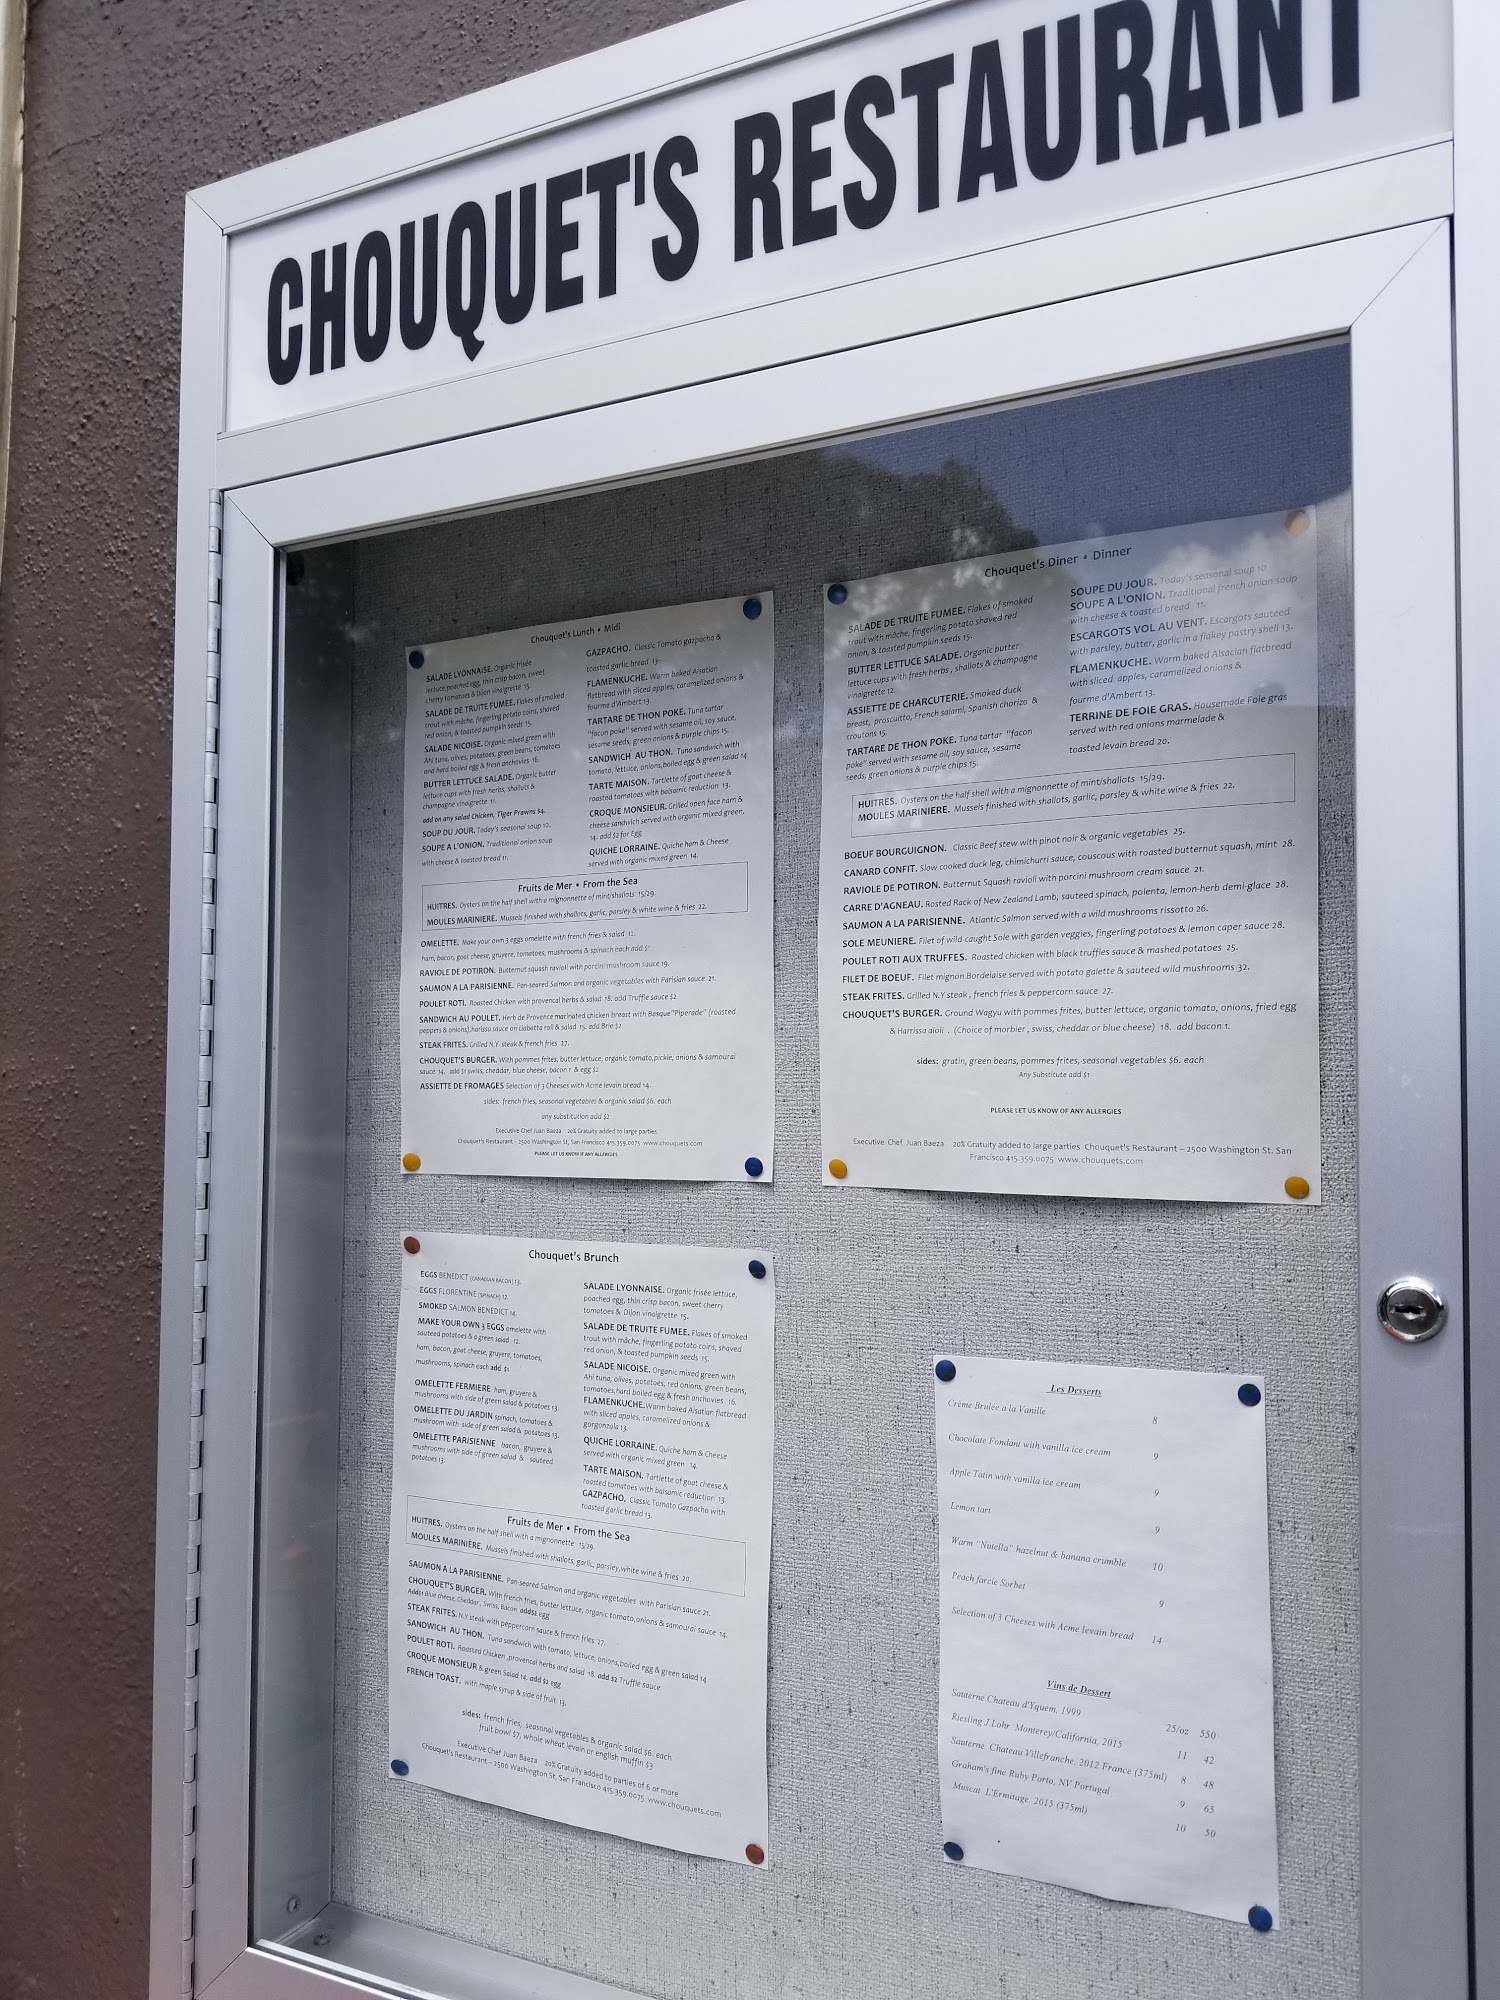 CHOUQUET'S RESTAURANT
Chouquet's Lunch • Midi
SALADE LYONNAISE. Organic frisée
lettuce,poached egg, thin crisp bacon, sweet
cherry tomatoes & Dijon vinaigrette 15.
SALADE DE TRUITE FUMEE. Flakes of smoked
trout with mâche, fingerling potato coins, shaved
red onion, & toasted pumpkin seeds 15.
SALADE NICOISE. Organic mixed green with
Ahi tuna, olives, potatoes, green beans, tomatoes
and hard boiled egg & fresh anchovies 16.
BUTTER LETTUCE SALADE. Organic butter
lettuce cups with fresh herbs, shallots &
champagne vinaigrette 11.
add on any salad Chicken, Tiger Prawns $4.
SOUP DU JOUR. Today's seasonal soup 10.
SOUPE A L'ONION. Traditional onion soup
with cheese & toasted bread 11.
GAZPACHO. Classic Tomato gazpacho &
toasted garlic bread 13.
FLAMENKUCHE. Warm baked Alsatian
flatbread with sliced apples, caramelized onions &
fourme d'Ambert 13.
TARTARE DE THON POKE. Tuna tartar
"facun poke" served with sesame oil, soy sauce,
sesame seeds, green onions & purple chips 15.
SANDWICH AU THON. Tuna sandwich with
tomato, lettuce, onions,boiled egg & green salad 14
TARTE MAISON. Tartlette of goat cheese &
roasted tomatoes with balsamic reduction 13.
CROQUE MONSIEUR. Grilled open face ham &
cheese sandwich served with organic mixed green.
14. add $2 for Egg
QUICHE LORRAINE. Quiche ham & Cheese
served with organic mixed green 14.
Fruits de Mer • From the Sea
HUITRES. Oysters on the half shell with a mignonnette of mint/shallots 15/29.
MOULES MARINIERE. Mussels finished with shallots, garlic, parsley & white wine & fries 22.
OMELETTE. Make your own 3 eggs omelette with french fries & salad 12.
ham, bacon, goat cheese, gruyere, tomatoes, mushrooms & spinach each add $1
RAVIOLE DE POTIRON. Butternut squash ravioli with porcini mushroom sauce 19.
SAUMON A LA PARISIENNE. Pan-seared Salmon and organic vegetables with Parisian sauce 21.
POULET ROTI. Roasted Chicken with provencal herbs & salad 18. add Truffle sauce $2
SANDWICH AU POULET. Herb de Provence marinated chicken breast with Basque"Piperade" (roasted
peppers & onions),harissa sauce on ciabatta roll & salad 15. add Brie $2
STEAK FRITES. Grilled N.Y steak & french fries 27.
CHOUQUET'S BURGER. With pommes frites, butter lettuce, organic tomato,pickle, onions & samourai
sauce 14. add $1 swiss, cheddar, blue cheese, bacon 1 & egg $2
ASSIETTE DE FROMAGES Selection of 3 Cheeses with Acme levain bread 14.
sides: french fries, seasonal vegetables & organic salad $6. each
any substitution add $2
Executive Chef Juan Baeza 20% Gratuity added to large parties.
Chouquet's Restaurant – 2500 Washington St, San Francisco 415.359.0075 www.chouquets.com
PLEASE LET US KNOW IF ANY ALLERGIES
Chouquet's Diner • Dinner
SALADE DE TRUITE FUMEE. Flakes of smoked
trout with mâche, fingerling potato shaved red
onion, & toasted pumpkin seeds 15.
BUTTER LETTUCE SALADE. Organic butter
lettuce cups with fresh herbs , shallots & champagne
vinaigrette 12.
ASSIETTE DE CHARCUTERIE. Smoked duck
breast, proscuitto, French salami, Spanish chorizo &
croutons 15.
TARTARE DE THON POKE. Tuna tartar "facon
poke" served with sesame oil, soy sauce, sesame
seeds, green onions & purple chips 15.
SOUPE DU JOUR. Today's seasonal soup 10
SOUPE A L'ONION. Traditional french onion soup
with cheese & toasted bread 11.
ESCARGOTS VOL AU VENT. Escargots sautéed
with parsley, butter, garlic in a flakey pastry shell 13.
FLAMENKUCHE. Warm baked Alsacian flatbread
with sliced apples, caramelized onions &
fourme d'Ambert 13.
TERRINE DE FOIE GRAS. Housemade Foie gras
served with red onions marmelade &
toasted levain bread 20.
HUITRES. Oysters on the half shell with a mignonnette of mint/shallots 15/29.
MOULES MARINIERE. Mussels finished with shallots, garlic, parsley & white wine & fries 22.
BOEUF BOURGUIGNON. Classic Beef stew with pinot noir & organic vegetables 25.
CANARD CONFIT. Slow cooked duck leg, chimichurri sauce, couscous with roasted butternut squash, mint 28.
RAVIOLE DE POTIRON. Butternut Squash ravioli with porcini mushroom cream sauce 21.
CARRE D'AGNEAU. Rosted Rack of New Zealand Lamb, sauteed spinach, polenta, lemon-herb demi-glace 28.
SAUMON A LA PARISIENNE. Atlantic Salmon served with a wild mushrooms rissotto 26.
SOLE MEUNIERE. Filet of wild-caught Sole with garden veggies, fingerling potatoes & lemon caper sauce 28.
POULET ROTI AUX TRUFFES. Roasted chicken with black truffles sauce & mashed potatoes 25.
FILET DE BOEUF. Filet mignon Bordelaise served with potato galette & sauteed wild mushrooms 32.
STEAK FRITES. Grilled N.Y steak , french fries & peppercorn sauce 27.
CHOUQUET'S BURGER. Ground Wagyu with pommes frites, butter lettuce, organic tomato, onions, fried egg
& Harrissa aioli . (Choice of morbier , swiss, cheddar or blue cheese) 18. add bacon 1.
sides: gratin, green beans, pommes frites, seasonal vegetables $6. each
Any Substitute add $1
PLEASE LET US KNOW OF ANY ALLERGIES
Executive Chef Juan Baeza 20% Gratuity added to large parties Chouquet's Restaurant – 2500 Washington St. San
Francisco 415.359.0075 www.chouquets.com
Chouquet's Brunch
EGGS BENEDICT (CANADIAN BACON) 13.
EGGS FLORENTINE (SPINACH) 12.
SMOKED SALMON BENEDICT 14.
MAKE YOUR OWN 3 EGGS omelette with
sauteed potatoes & a green salad 12.
ham, bacon, goat cheese, gruyere, tomatoes,
mushrooms, spinach each add $1
OMELETTE FERMIERE ham, gruyere &
mushrooms with side of green salad & potatoes 13.
OMELETTE DU JARDIN spinach, tomatoes &
mushroom with side of green salad & potatoes 13.
OMELETTE PARISIENNE bacon, gruyere &
mushrooms with side of green salad & sauteed
potatoes 13.
SALADE LYONNAISE. Organic frisée lettuce,
poached egg, thin crisp bacon, sweet cherry
tomatoes & Dijon vinaigrette 15.
SALADE DE TRUITE FUMEE. Flakes of smoked
trout with mâche, fingerling potato coins, shaved
red onion, & toasted pumpkin seeds 15.
SALADE NICOISE. Organic mixed green with
Ahi tuna, olives, potatoes, red onions, green beans,
tomatoes,hard boiled egg & fresh anchovies 16.
FLAMENKUCHE.Warm baked Alsatian flatbread
with sliced apples, caramelized onions &
gorgonzola 13.
QUICHE LORRAINE. Quiche ham & Cheese
served with organic mixed green 14.
TARTE MAISON. Tartlette of goat cheese &
roasted tomatoes with balsamic reduction 13.
GAZPACHO. Classic Tomato Gazpacho with
toasted garlic bread 13.
Fruits de Mer • From the Sea
HUITRES. Oysters on the half shell with a mignonnette 15/29.
MOULES MARINIÈRE. Mussels finished with shallots, garlic, parsley,white wine & fries 20.
SAUMON A LA PARISIENNE. Pan-seared Salmon and organic vegetables with Parisian sauce 21.
CHOUQUET'S BURGER. With french fries, butter lettuce, organic tomato,onions & samourai sauce 14.
Add$1 Blue cheese, Cheddar, Swiss, Bacon add$2 egg
STEAK FRITES. N.Y steak with peppercorn sauce & french fries 27.
SANDWICH AU THON. Tuna sandwich with tomato, lettuce, onions,boiled egg & green salad 14
POULET ROTI. Roasted Chicken ,provencal herbs and salad 18. add $2 Truffle sauce
CROQUE MONSIEUR & green Salad 14. add $2 egg
FRENCH TOAST. with maple syrup & side of fruit 13.
sides: french fries, seasonal vegetables & organic salad $6. each
fruit bowl $7, whole wheat levain or english muffin $3
Executive Chef Juan Baeza 20% Gratuity added to parties of 6 or more
Chouquet's Restaurant – 2500 Washington St, San Francisco 415.359.0075 www.chouquets.com
Les Desserts
Crème Brulée a la Vanille 8
Chocolate Fondant with vanilla ice cream 9
Apple Tatin with vanilla ice cream 9
Lemon tart 9
Warm "Nutella" hazelnut & banana crumble 10
Peach farcie Sorbet 9
Selection of 3 Cheeses with Acme levain bread 14
Vins de Dessert
Sauterne Chateau d'Yquem, 1999 25/oz 550
Riesling J.Lohr Monterey/California, 2015 11 42
Sauterne Chateau Villefranche, 2012 France (375ml) 8 48
Graham's fine Ruby Porto, NV Portugal 9 65
Muscat L'Ermitage, 2015 (375ml) 10 50